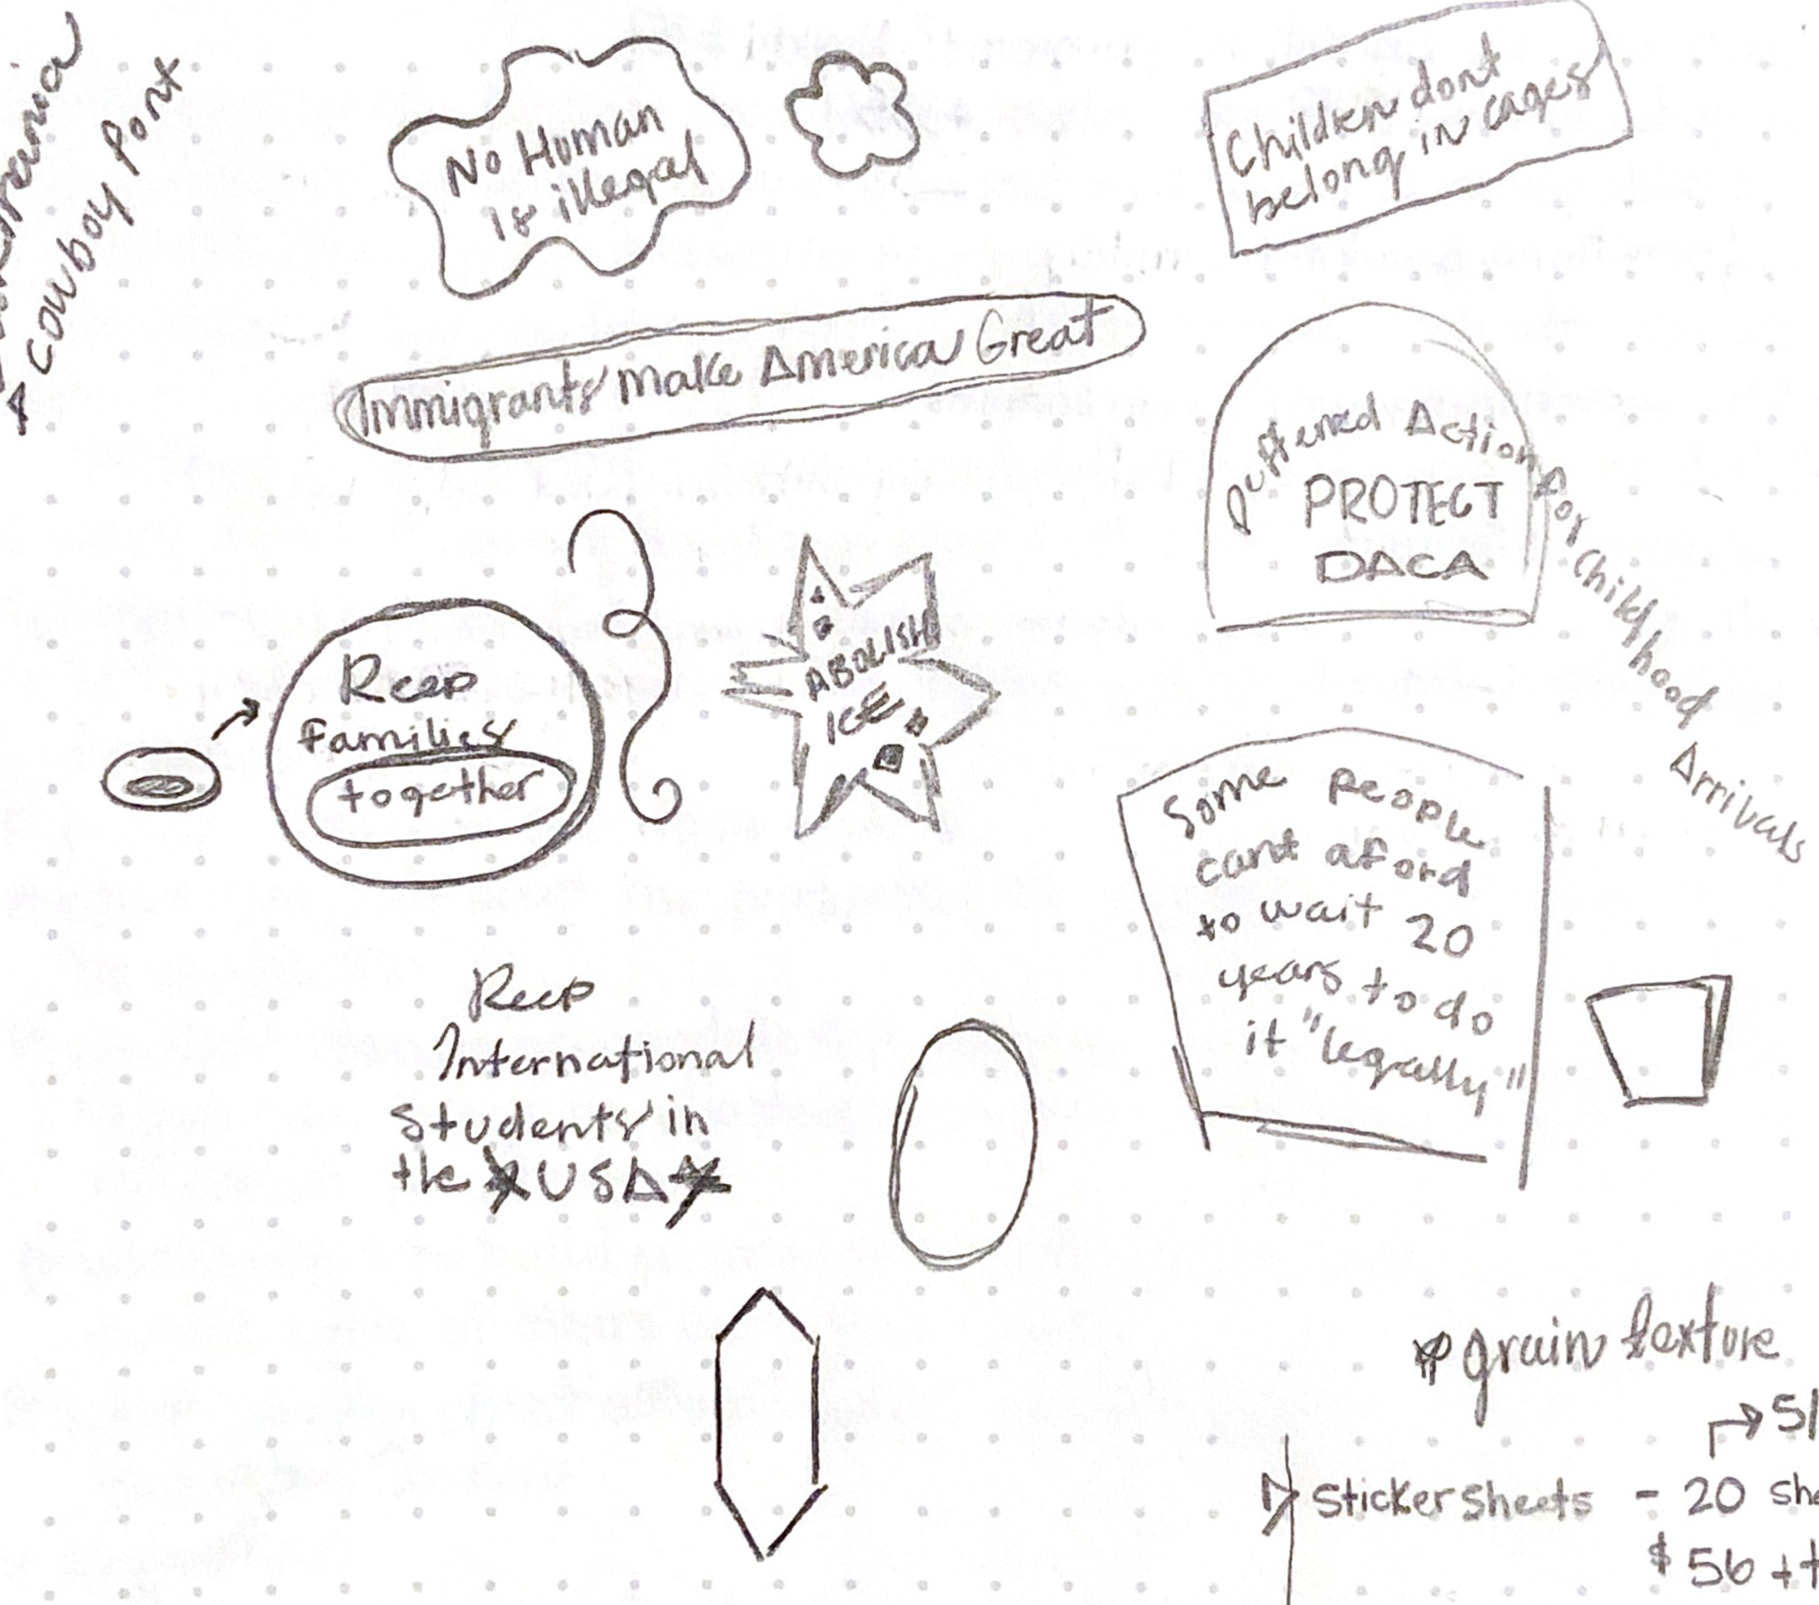 Cowboy Font
No Human
is illegal
Children dont
belong in cages
Immigrants make America Great
Deffered Action for Childhood Arrivals
PROTECT
DACA
Keep
families
together
ABOLISH
ICE
Some people
cant aford
to wait 20
years to do
it "legally"
Keep
International
Students in
the USA
grain texture
Sticker Sheets - 20
$56